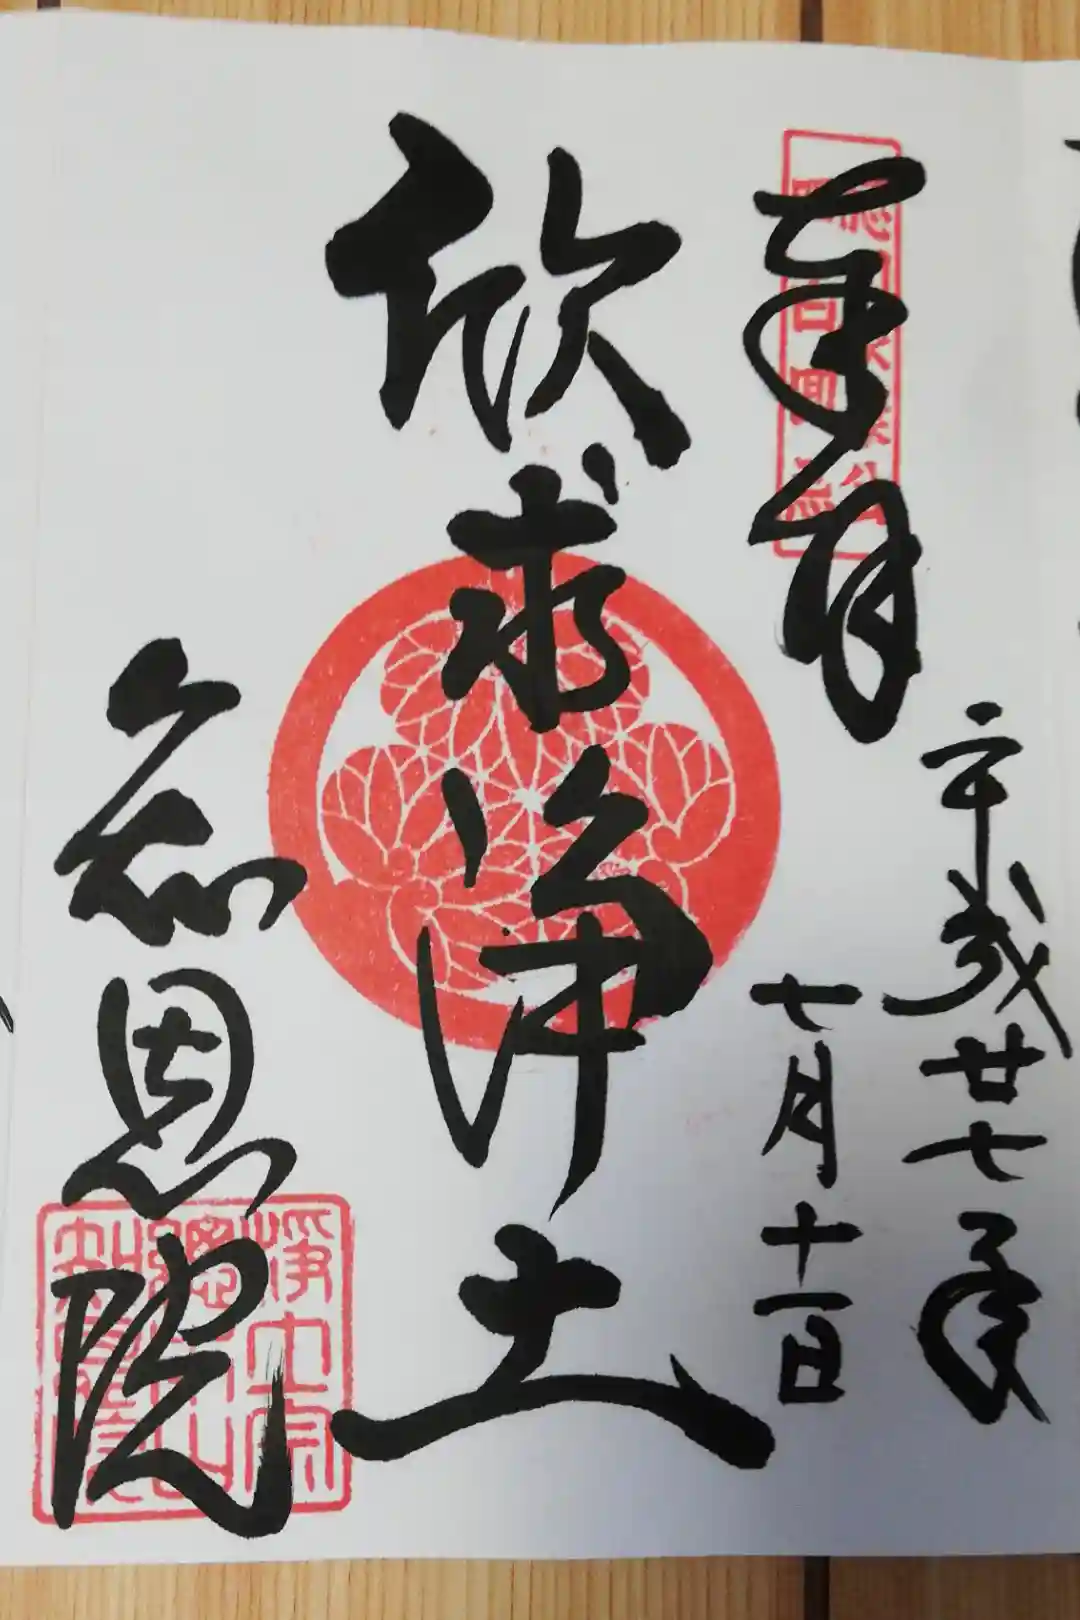 奉拝
平成廿七年
七月十一日
欣求浄土
知恩院
浄土宗
總本山
知恩院